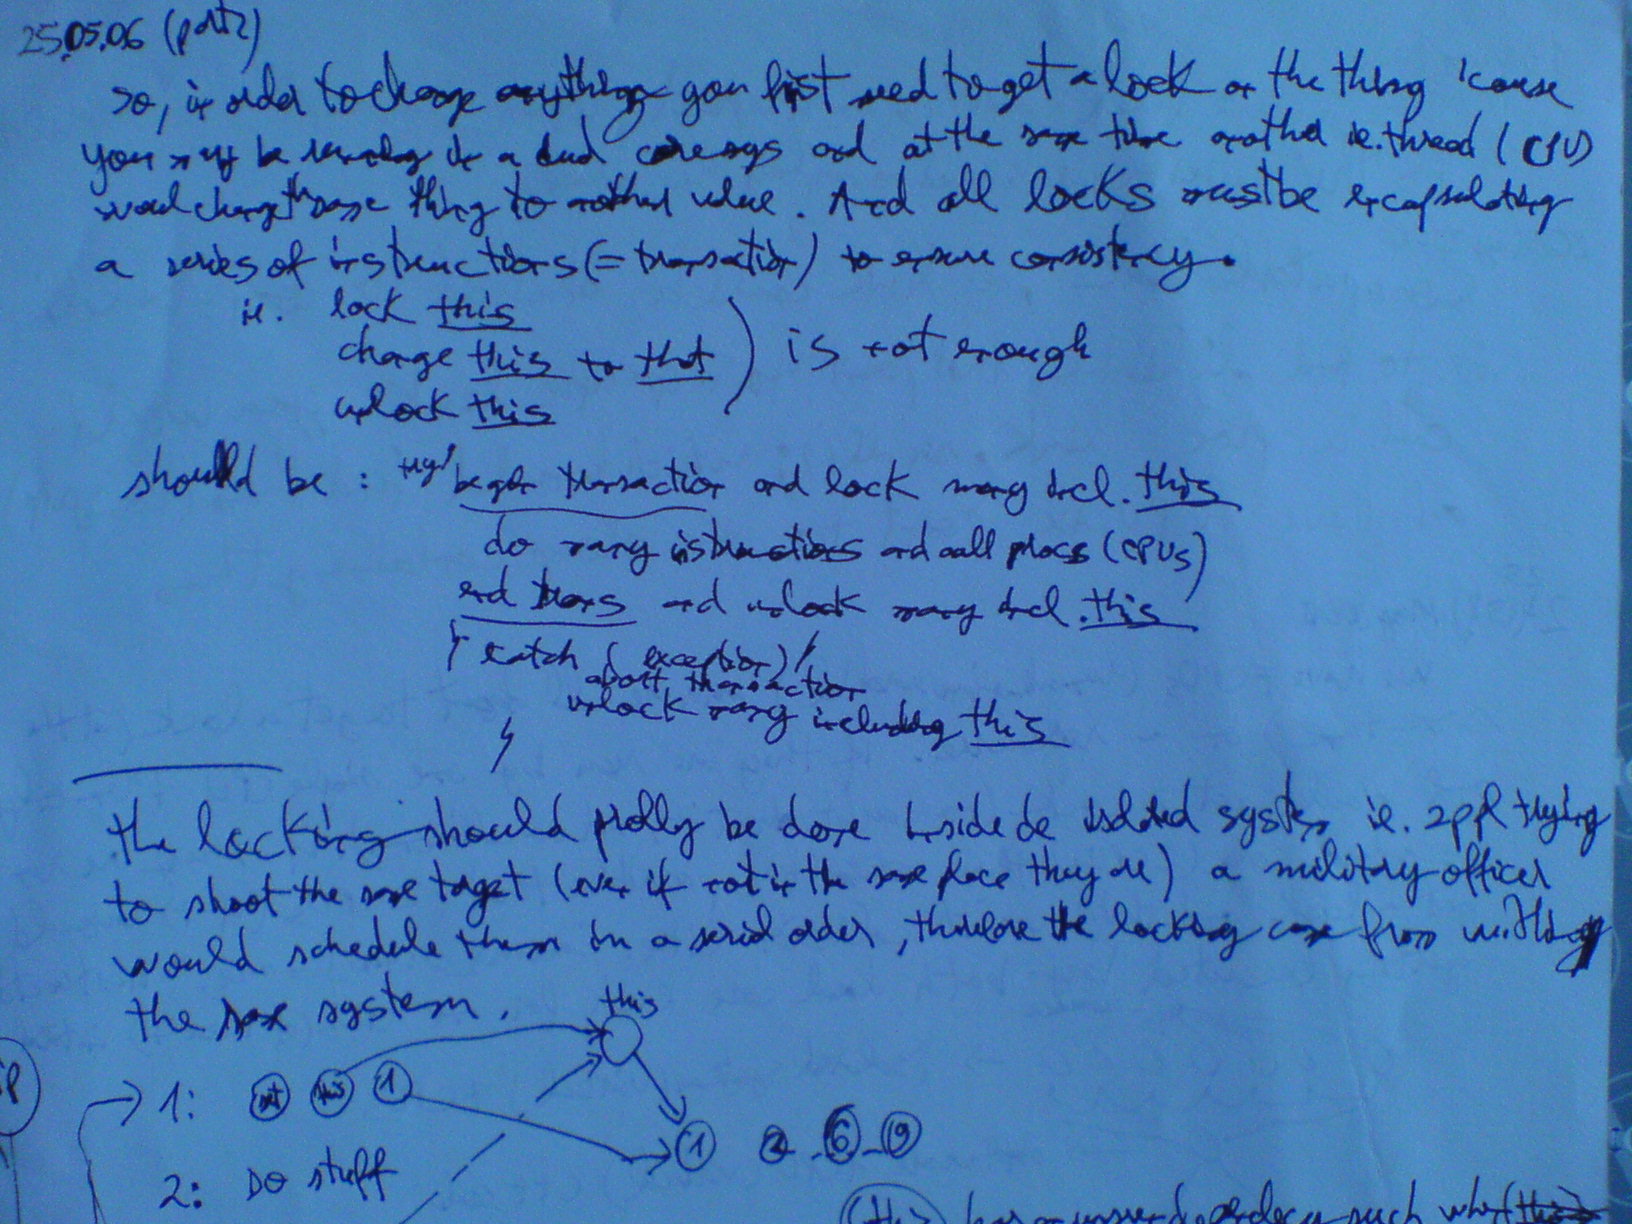 25.05.06 (part2)
so, in order to change anything you first need to get a lock on the thing 'cause
you may be running in a dual core sys and at the same time another ie. thread (CPU)
would change the same thing to another value. And all locks must be encapsulating
a series of instructions (= transaction) to ensure consistency.
ie. lock this
change this to that ) is not enough
unlock this
should be : try{ begin transaction and lock many incl. this
do many instructions and call procs (CPUs)
end trans and unlock many incl. this
} catch (exception) {
abort transaction
unlock many including this
}
the locking should prolly be done inside de isolated system ie. 2ppl trying
to shoot the same target (even if not in the same place they are) a military officer
would schedule them in a serial order, therefore the locking came from within
the same system.
this
1: set this 1
1 2 6 9
2: DO stuff
this has such